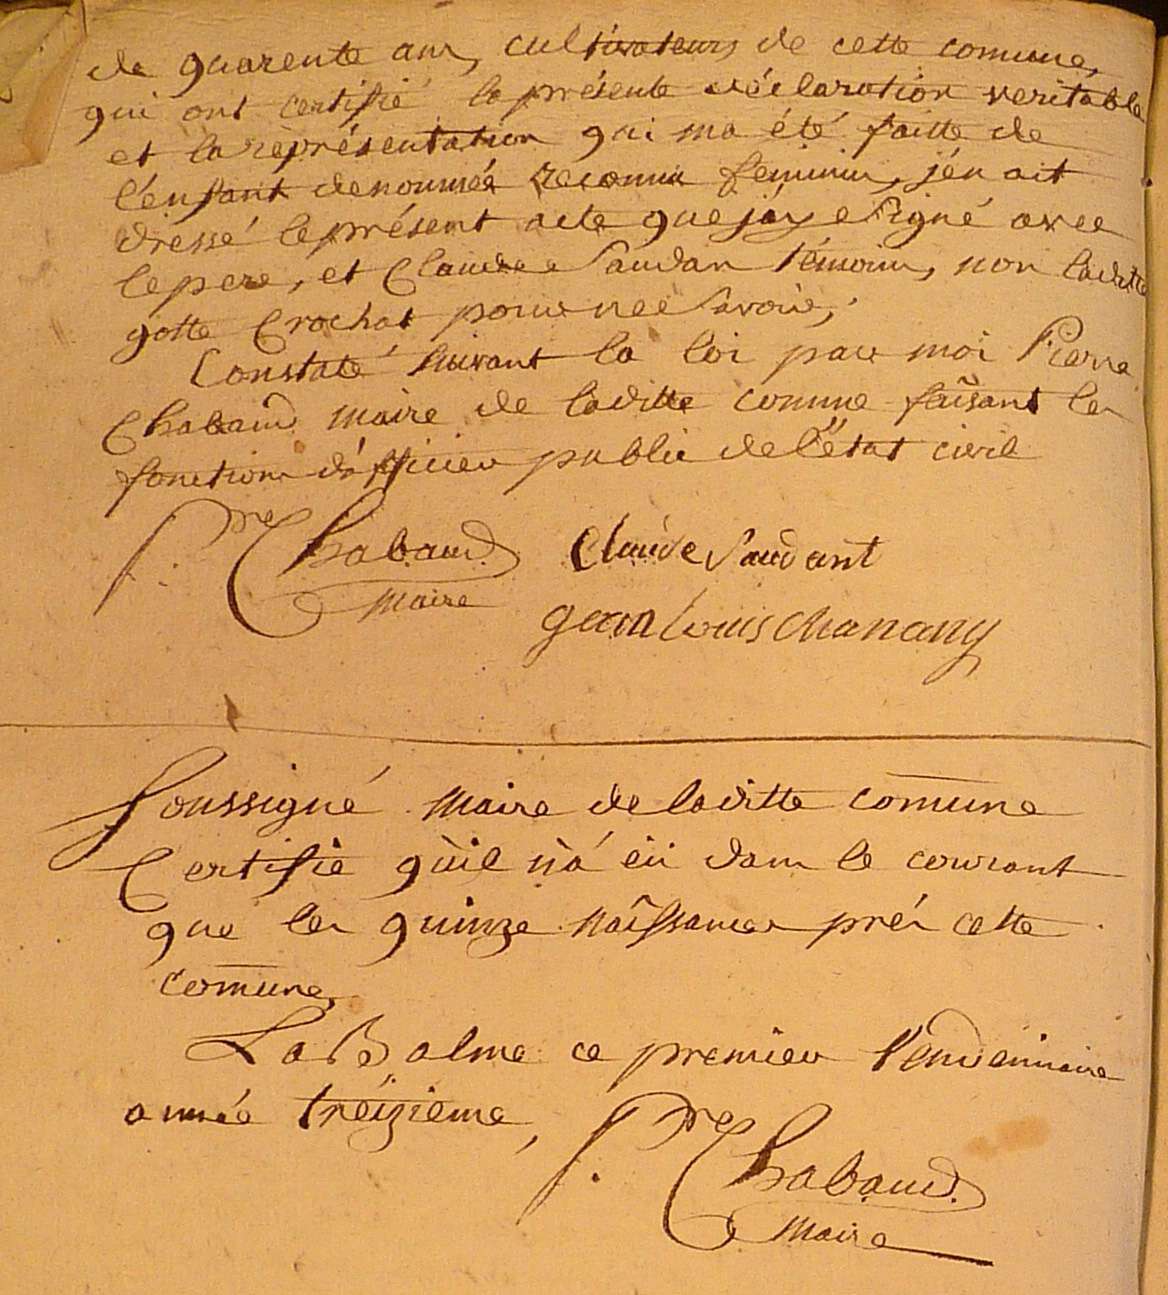 de quarente ans, cultivateurs de cette comune,
qui ont certifié la présente déclaration veritable
et la représentation qui ma été faitte de
l'énfant denommés reconnu feminin, j'én ait
dressé le présent acte que j'ay esigné avec
le pere, et Claude Saudan témoin, non laditte
gotte Crochat pour ne le savoir,
Constaté suivant la loi par moi Pierre
Chabaud maire de laditte comune faisant les
fonctions d'officier public de l'état civil
P.re Chabaud Claude Saudant
Maire
gean Louis Chanany
Soussigné Maire de laditte comune
Certifie qu'il n'á éü dans le courant
que les quinze naîssances prés cette
comune,
La Balme ce premier Vendemiaire
année treizieme,
P.re Chabaud
Maire